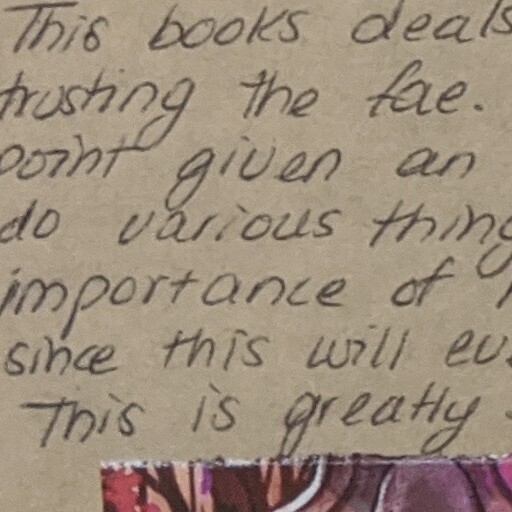 This books deals
trusting the fae.
point given an
do various thing
importance of
since this will
This is greatly